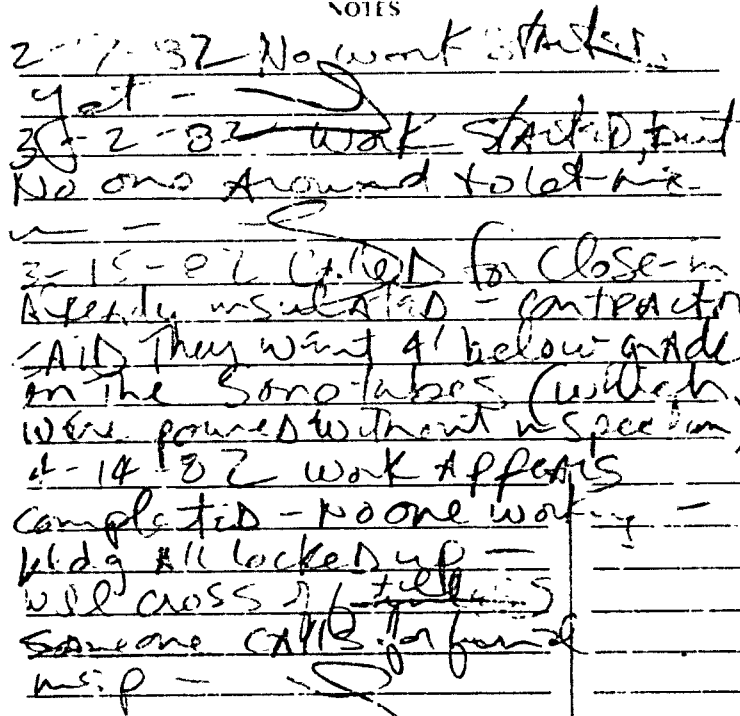 NOTES
2- -82 No work started
yet -
3-2-82 Work StArtED, but
No one Around to let me
in -
3-15-82 CAllED for Close-in
Already insulAtED - contrActor
SAID They went 4' below grade
on The Sono-tubes (which
were pourED without inspection)
4-14-82 work AppeArs
complEtED - No one working -
bldg All locked up -
will cross off till
someone CAlls for final
insp -